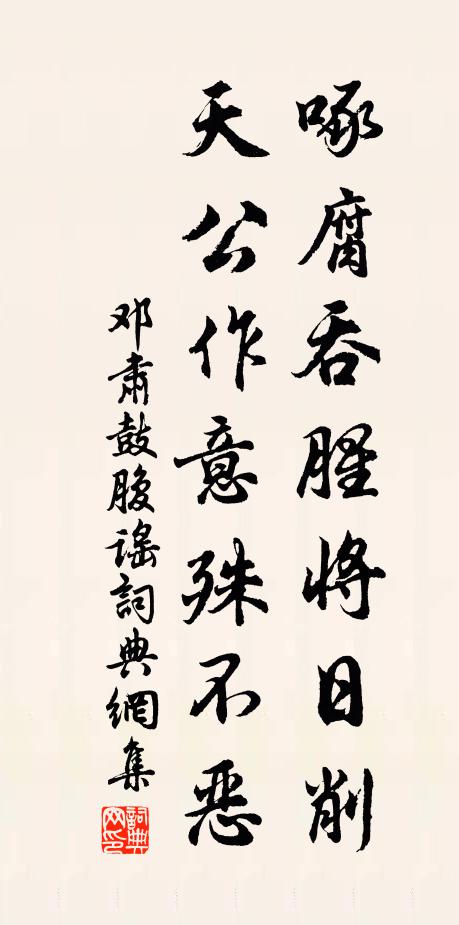 啄腐吞腥将日削
天公作意殊不恶
邓肃鼓腹謡詞典網集
詞典网印